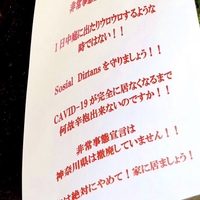 非常事態
1日中庭に出たりウロウロするような
時ではない！！
Sosial Distansを守りましょう！！
CAVID-19が完全に居なくなるまで
何故辛抱出来ないのですか！！
非常事態宣言は
神奈川県は撤廃していません！！
は絶対にやめて！家に居ましょう！